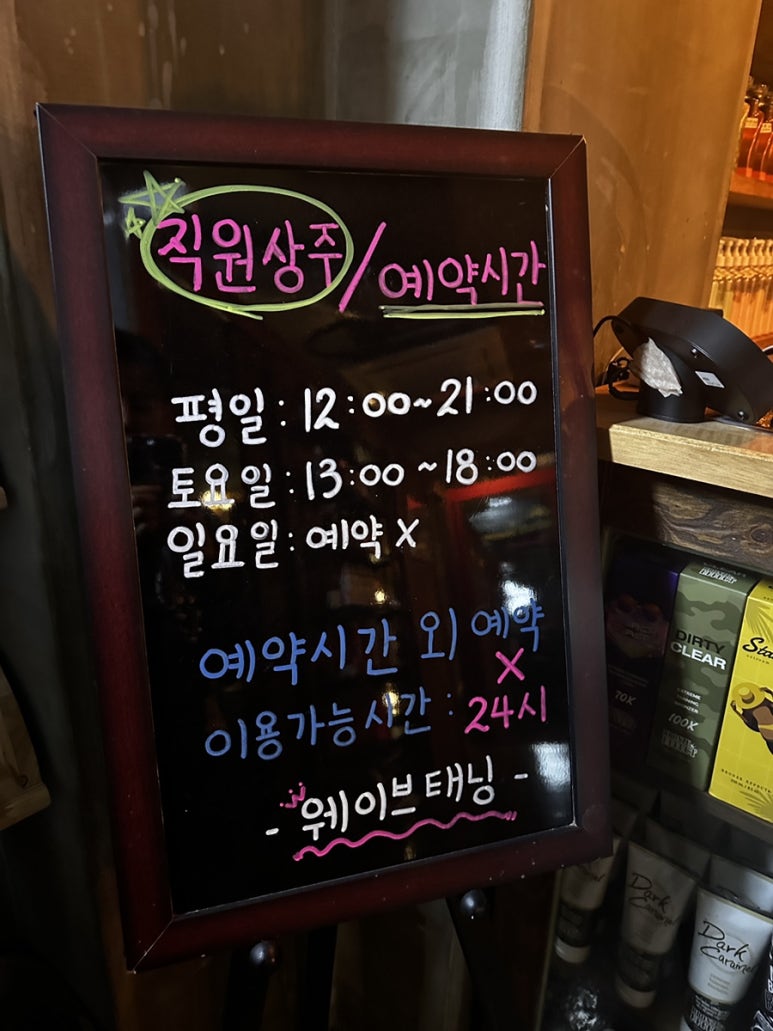 직원상주/예약시간
평일 : 12:00~21:00
토요일 : 13:00~18:00
일요일 : 예약 X
예약시간 외 예약
X
이용가능시간 : 24시
- 웨이브태닝 -
DIRTY
CLEAR
EXTREME
TANNING
BRONZER
100K
70K
Dark
Caramel
Dark
Caramel